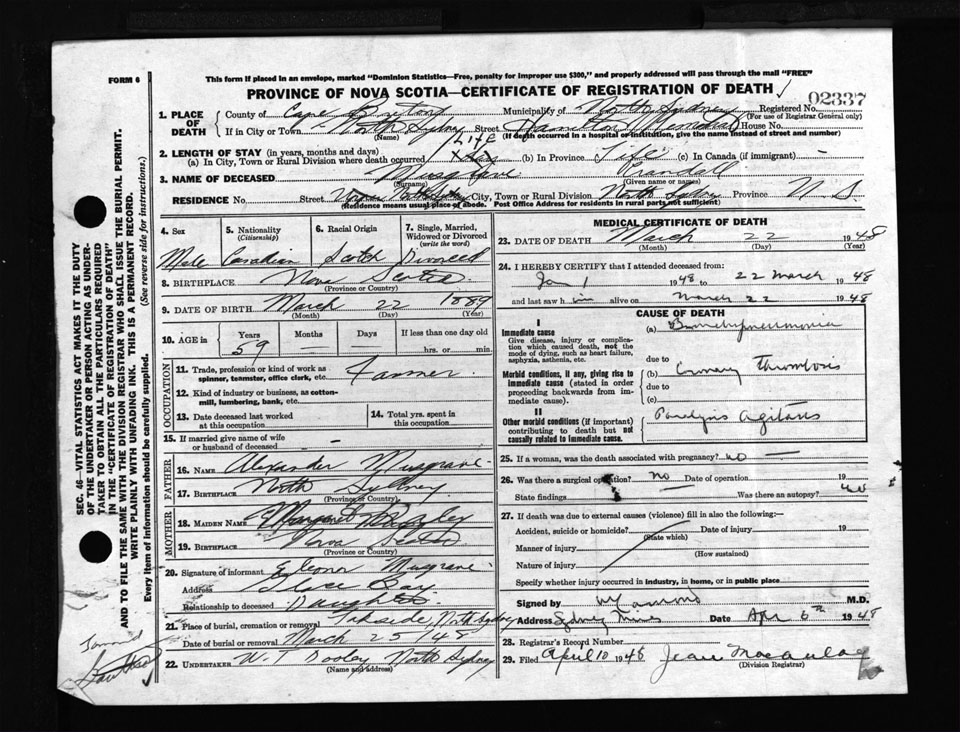 FORM 6
This form if placed in an envelope, marked "Dominion Statistics—Free, penalty for improper use $300," and properly addressed will pass through the mail "FREE"
PROVINCE OF NOVA SCOTIA—CERTIFICATE OF REGISTRATION OF DEATH
02337
1. PLACE OF DEATH
County of Cape Breton Municipality of North Sydney Registered No.
(For use of Registrar General only)
If in City or Town North Sydney Street Hamilton Memorial House No.
(Name) (If death occurred in a hospital or institution, give the name instead of street and number)
2. LENGTH OF STAY (in years, months and days)
(a) In City, Town or Rural Division where death occurred Life (b) In Province Life (c) In Canada (if immigrant) —
3. NAME OF DECEASED Musgrave Crandall
(Surname) (Given name or names)
RESIDENCE No. Street City, Town or Rural Division North Sydney Province N S
(Residence means usual place of abode. Post Office Address for residents in rural parts not sufficient)
4. Sex Male
5. Nationality (Citizenship) Canadian
6. Racial Origin Scotch
7. Single, Married, Widowed or Divorced (write the word) Divorced
8. BIRTHPLACE Nova Scotia
(Province or Country)
9. DATE OF BIRTH March 22 1889
(Month) (Day) (Year)
10. AGE in Years Months Days If less than one day old
59 — — hrs. or min.
OCCUPATION
11. Trade, profession or kind of work as spinner, teamster, office clerk, etc. Farmer
12. Kind of industry or business, as cotton-mill, lumbering, bank, etc.
13. Date deceased last worked at this occupation
14. Total yrs. spent in this occupation
15. If married give name of wife or husband of deceased —
FATHER
16. NAME Alexander Musgrave
17. BIRTHPLACE North Sydney
(Province or Country)
MOTHER
18. MAIDEN NAME Margaret
19. BIRTHPLACE Nova Scotia
(Province or Country)
20. Signature of informant Eleanor Musgrave
Address Glace Bay
Relationship to deceased Daughter
21. Place of burial, cremation or removal Lakeside, North Sydney
Date of burial or removal March 25/48
22. UNDERTAKER W. T. Dooley North Sydney
(Name and address)
MEDICAL CERTIFICATE OF DEATH
23. DATE OF DEATH March 22 1948
(Month) (Day) (Year)
24. I HEREBY CERTIFY that I attended deceased from:
Jan 1 1948 to 22 March 1948
and last saw him alive on March 22 1948
CAUSE OF DEATH
I
Immediate cause
Give disease, injury or complication which caused death, not the mode of dying, such as heart failure, asphyxia, asthenia, etc.
(a) Bronchopneumonia
due to
Morbid conditions, if any, giving rise to immediate cause (stated in order proceeding backwards from immediate cause).
(b) Coronary thrombosis
due to
(c)
II
Other morbid conditions (if important) contributing to death but not causally related to immediate cause.
Paralysis Agitans
25. If a woman, was the death associated with pregnancy? no —
26. Was there a surgical operation? No Date of operation 19
State findings — Was there an autopsy? no
27. If death was due to external causes (violence) fill in also the following:—
Accident, suicide or homicide? Date of injury 19
(State which)
Manner of injury
(How sustained)
Nature of injury
Specify whether injury occurred in industry, in home, or in public place
Signed by M.D.
Address Sydney Mines Date Apr 6th 1948
28. Registrar's Record Number
29. Filed April 10 1948 Jean Macaulay
(Division Registrar)
SEC. 46—VITAL STATISTICS ACT MAKES IT THE DUTY
OF THE UNDERTAKER OR PERSON ACTING AS UNDER-
TAKER TO OBTAIN ALL THE PARTICULARS REQUIRED
IN THE "CERTIFICATE OF REGISTRATION OF DEATH"
AND TO FILE THE SAME WITH THE DIVISION REGISTRAR WHO SHALL ISSUE THE BURIAL PERMIT.
WRITE PLAINLY WITH UNFADING INK. THIS IS A PERMANENT RECORD.
Every item of information should be carefully supplied. (See reverse side for instructions.)